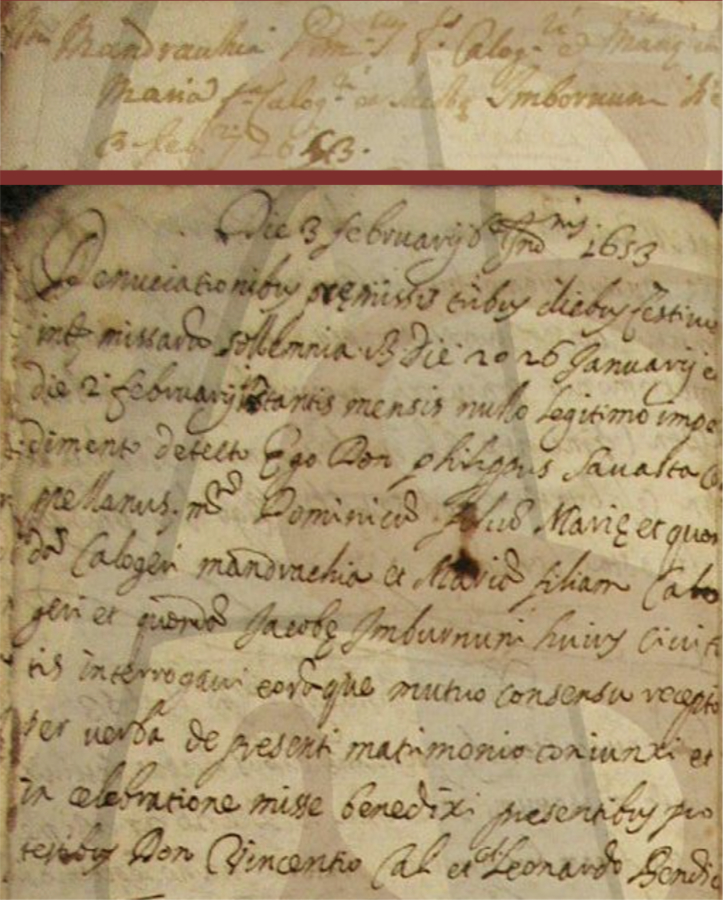 Mandrachia Dom.cu f.s Calog.ri et Mariæ
Maria f.a Calog.ri et Imburnuni die
3 feb.rij 1653.
Die 3 februarij 6æ Ind.nis 1653
Denuciationibus premissis tribus diebus festiuis
int. missarū sollemnia die 20 26 Januarij et
die 2 februarij istantis mensis nullo legitimo impe
dimento detecto Ego Don philippus Sauasta Ca
pellanus mr. Dominicū filiū Mariȩ et quon
dā Calogeri mandrachia et Mariā filiam Calo
geri et quondā Jacobȩ Imburnuni huius Ciuita
tis interrogaui eorūque mutuo consensu recepto
per verba de presenti matrimonio coniunxi et
in celebratione misse benedixi presentibus pro
testibus Don Vincentio Cal et cl. Leonardo Bendi